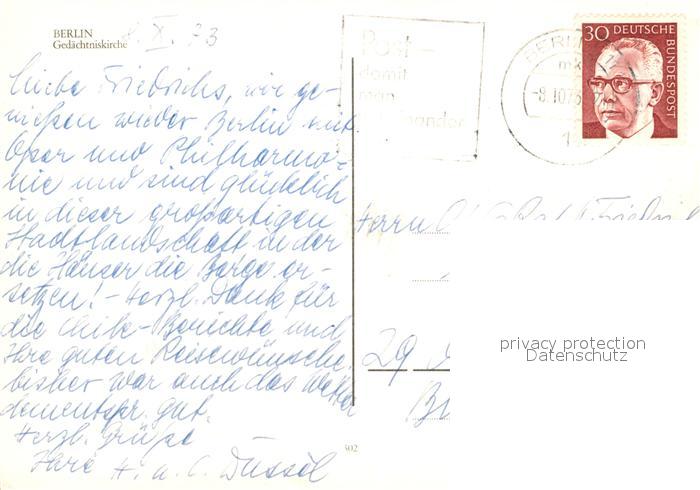 BERLIN
Gedächtniskirche
8. X. 73
Liebe Friedrichs, wir ge-
nießen wieder Berlin mit
Oper und Philharmo-
nie und sind glücklich
in dieser großartigen
Stadtlandschaft in der
die Häuser die Berge er-
setzen! - Herzl. Dank für
die Chile-Berichte und
Ihre guten Reisewünsche,
bisher war auch das Wetter
dementspr. gut.
Herzl. Grüße
Ihre H. u. C. Düssel
Post -
damit
man
BERLIN
-8.10.73
30 DEUTSCHE
BUNDESPOST
Herrn
29
privacy protection
Datenschutz
502